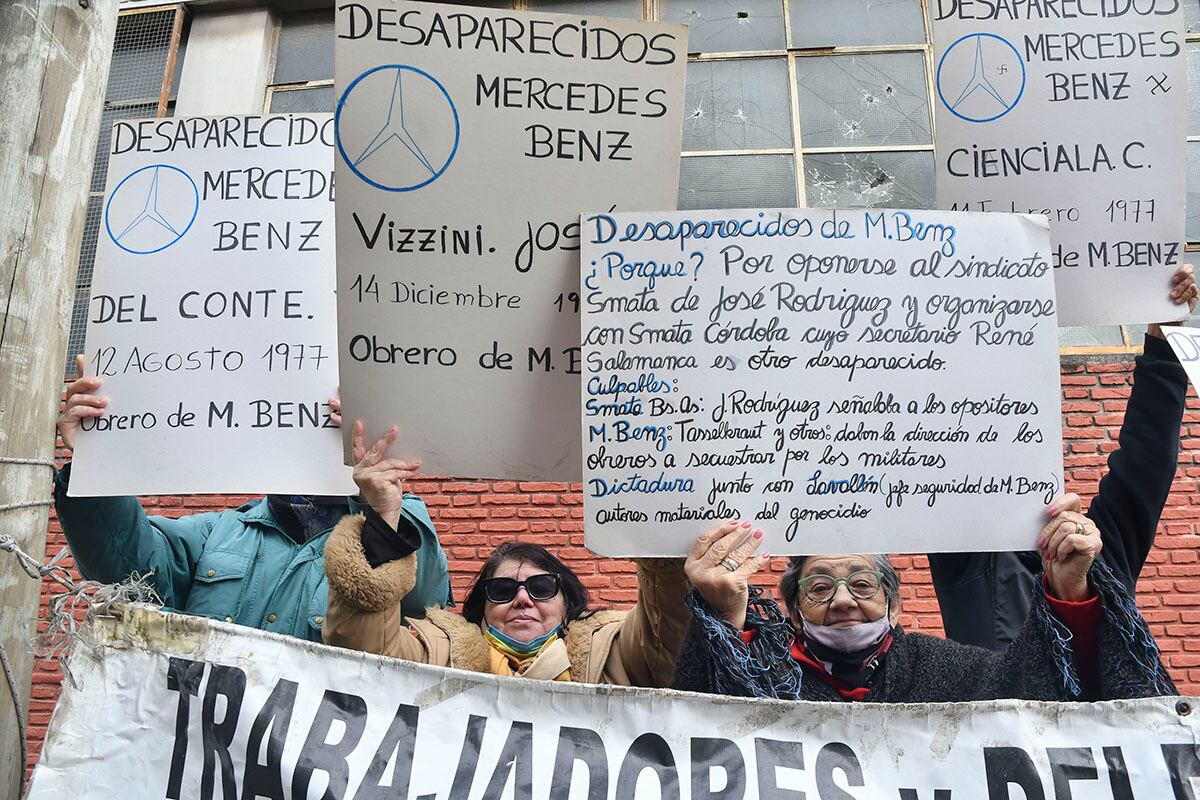 DESAPARECIDO
MERCEDE
BENZ
DEL CONTE.
12 AGOSTO 1977
Obrero de M. BENZ
DESAPARECIDOS
MERCEDES
BENZ
VIZZINI. JOS
14 Diciembre 19
Obrero de M. B
Desaparecidos de M. Benz
¿Porque? Por oponerse al sindicato
Smata de José Rodriguez y organizarse
con Smata Córdoba cuyo secretario René
Salamanca es otro desaparecido.
Culpables:
Smata Bs.As: J. Rodríguez señalaba a los opositores
M. Benz: Tasselkraut y otros: daban la dirección de los
obreros a secuestrar por los militares
Dictadura junto con Lavallén (jefe seguridad de M. Benz)
autores materiales del genocidio
DESAPARECIDOS
MERCEDES
BENZ
CIENCIALA. C.
11 Febrero 1977
de M. BENZ
TRABAJADORES y DELE